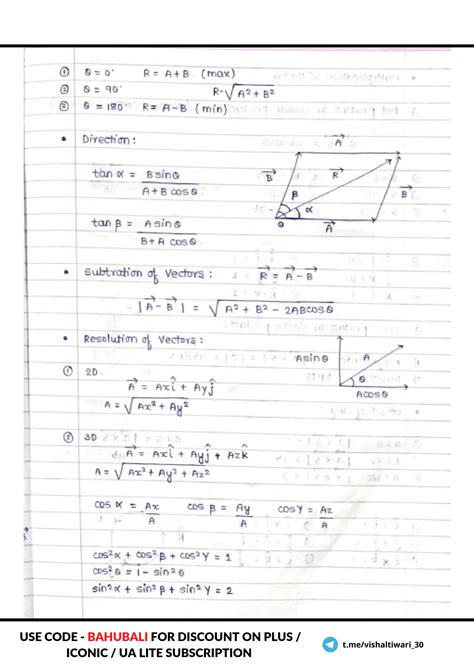 ① θ = 0° R = A + B (max)
② θ = 90° R = √A² + B²
③ θ = 180° R = A - B (min)
• Direction:
tan α = B sinθ / A + B cosθ
tan β = A sinθ / B + A cosθ
A
B R B
β
θ α
A
• Subtration of Vectors: R⃗ = A⃗ - B⃗
|A⃗ - B⃗| = √A² + B² - 2ABcosθ
• Resolution of Vectors:
Asinθ A
θ
Acosθ
① 2D.
A⃗ = Axî + Ayĵ
A = √Ax² + Ay²
② 3D
A⃗ = Axî + Ayĵ + Azk̂
A = √Ax² + Ay² + Az²
cos α = Ax / A cos β = Ay / A cosγ = Az / A
cos²α + cos²β + cos²γ = 1
cos²θ = 1 - sin²θ
sin²α + sin²β + sin²γ = 2
USE CODE - BAHUBALI FOR DISCOUNT ON PLUS /
ICONIC / UA LITE SUBSCRIPTION
t.me/vishaltiwari_30